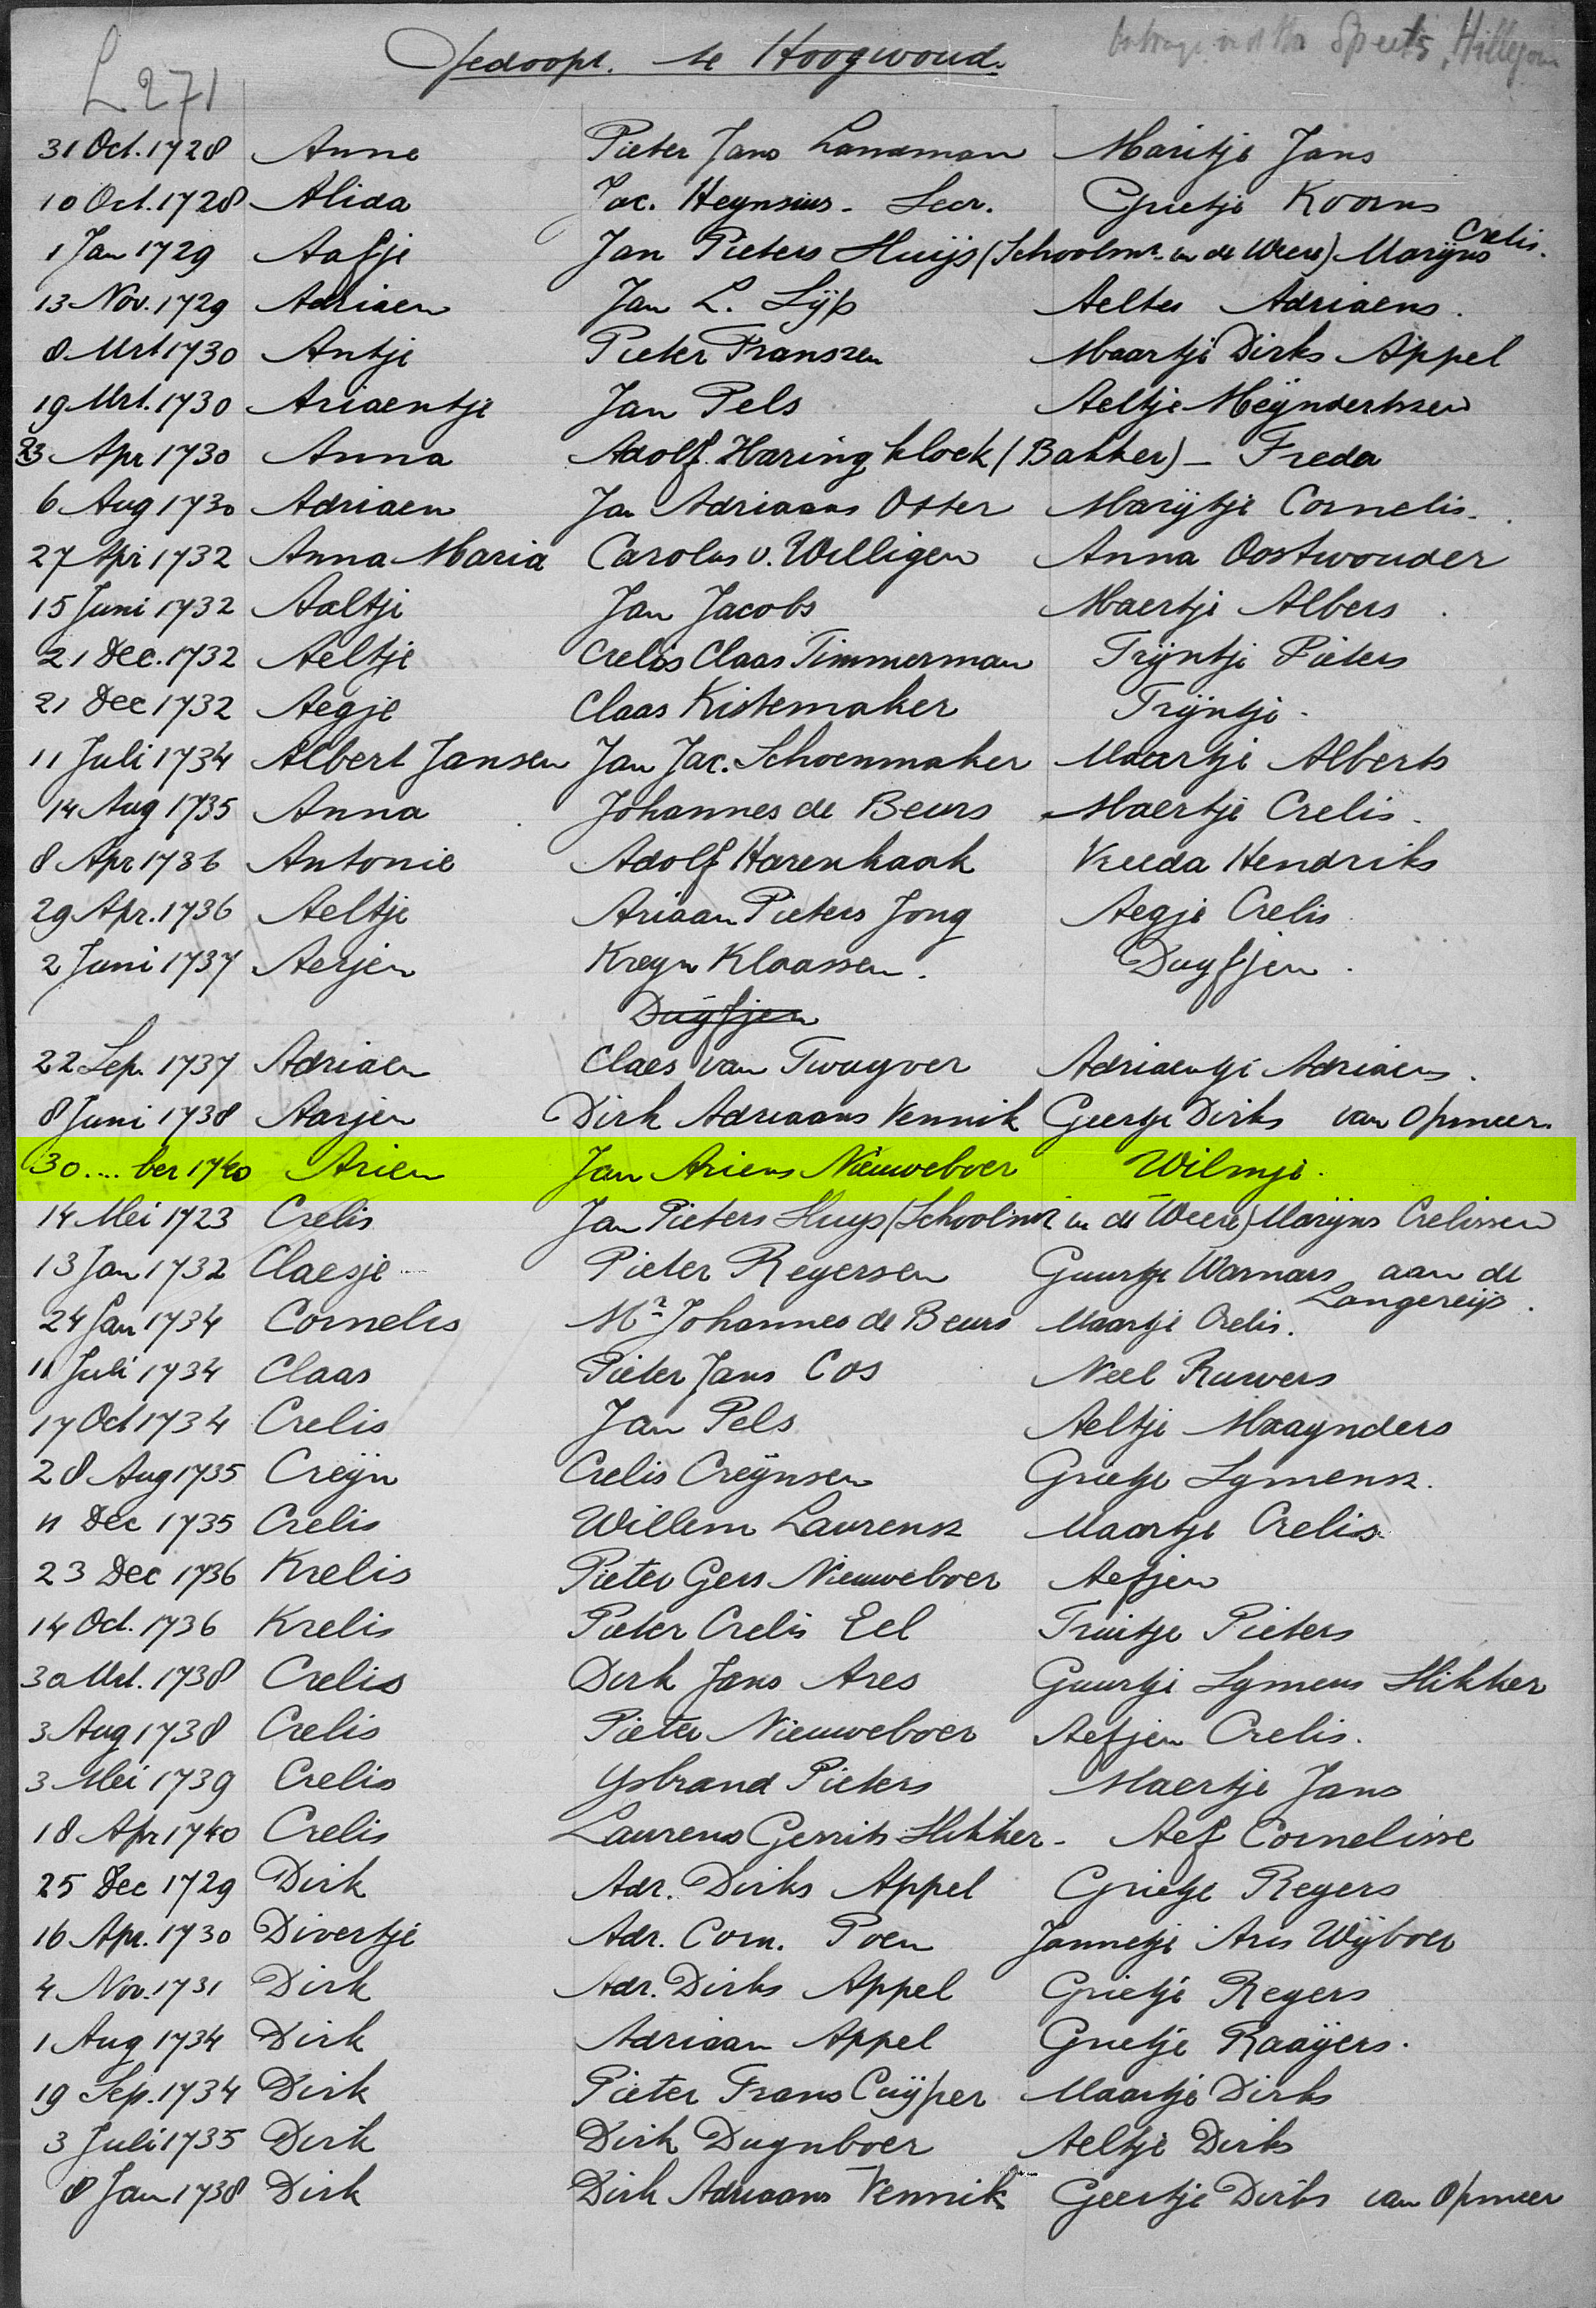 L 271
Gedoopt te Hoogwoud.
Speets, Hillegom
31 Oct. 1728 Anne Pieter Jans Landman Maritje Jans
10 Oct. 1728 Alida Jac. Heynsius - Secr. Grietje Koorns
1 Jan 1729 Aafje Jan Pieters Huijs (Schoolmr. in de Weere) Marijns Crelis.
13 Nov. 1729 Adriaen Jan L. Lijp Aeltes Adriaens.
8 Mrt 1730 Antje Pieter Franszen Maartje Dirks Appel
19 Mrt. 1730 Ariaentje Jan Pels Aeltje Meÿndertszen
23 Apr 1730 Anna Adolf. Haring klock (Bakker) - Freda
6 Aug 1730 Adriaen Jan Adriaans Otter Marijtje Cornelis.
27 Apr 1732 Anna Maria Carolus v. Willigen Anna Oostwouder
15 Juni 1732 Aaltje Jan Jacobs Maertje Albers.
21 Dec. 1732 Aeltje Crelis Claas Timmerman Trijntje Pieters
21 Dec 1732 Aegje Claas Kistemaker Trijntje -
11 Juli 1734 Albert Jansen Jan Jac. Schoenmaker Maartje Alberts
14 Aug 1735 Anna Johannes de Beurs Maertje Crelis.
8 Apr 1736 Antonie Adolf Harenkaak Vreeda Hendriks
29 Apr. 1736 Aeltje Ariaan Pieters Jong Aegje Crelis
2 Juni 1737 Aerjen Kreyn Klaassen. Duyfjen.
Duyfjen
22 Sep. 1737 Adriaen Claes van Twuyver Adriaentje Adriaens.
8 Juni 1738 Aarjen Dirk Adriaans Vennik Geertje Dirks van Opmeer.
30 .... ber 1740 Arien Jan Ariens Nieuweboer Wilmje.
14 Mei 1723 Crelis Jan Pieters Huys (Schoolmr in de Weere) Marijns Crelissen
13 Jan 1732 Claesje .... Pieter Reyersen Guurtje Warnars aan de
Langereijs.
24 Jan 1734 Cornelis Mr. Johannes de Beurs Maartje Crelis.
11 Juli 1734 Claas Pieter Jans Cos Neel Ruwers
17 Oct 1734 Crelis Jan Pels Aeltje Maaynders
28 Aug 1735 Creijn Crelis Creijnsen Grietje Symensz.
11 Dec 1735 Crelis Willem Laurensz Maartje Crelis
23 Dec 1736 Krelis Pieter Gers Nieuweboer Aefjen
14 Oct. 1736 Krelis Pieter Crelis Eel Truitje Pieters
30 Mrt. 1738 Crelis Dirk Jans Ares Guurtje Symens Slikker
3 Aug 1738 Crelis Pieter Nieuweboer Aefjen Crelis.
3 Mei 1739 Crelis Ysbrand Pieters Maertje Jans
18 Apr 1740 Crelis Laurens Gerrits Slikker - Aef Cornelisse
25 Dec 1729 Dirk Adr. Dirks Appel Grietje Reyers
16 Apr. 1730 Divertje Adr. Corn. Poen Jannetje Aris Wijboer
4 Nov. 1731 Dirk Adr. Dirks Appel Grietje Reyers
1 Aug 1734 Dirk Adriaan Appel Grietje Raaÿers.
19 Sep. 1734 Dirk Pieter Frans Cuijper Maartje Dirks
3 Juli 1735 Dirk Dirk Duynboer Aeltje Dirks
8 Jan 1738 Dirk Dirk Adriaans Vennik Geertje Dirks van Opmeer